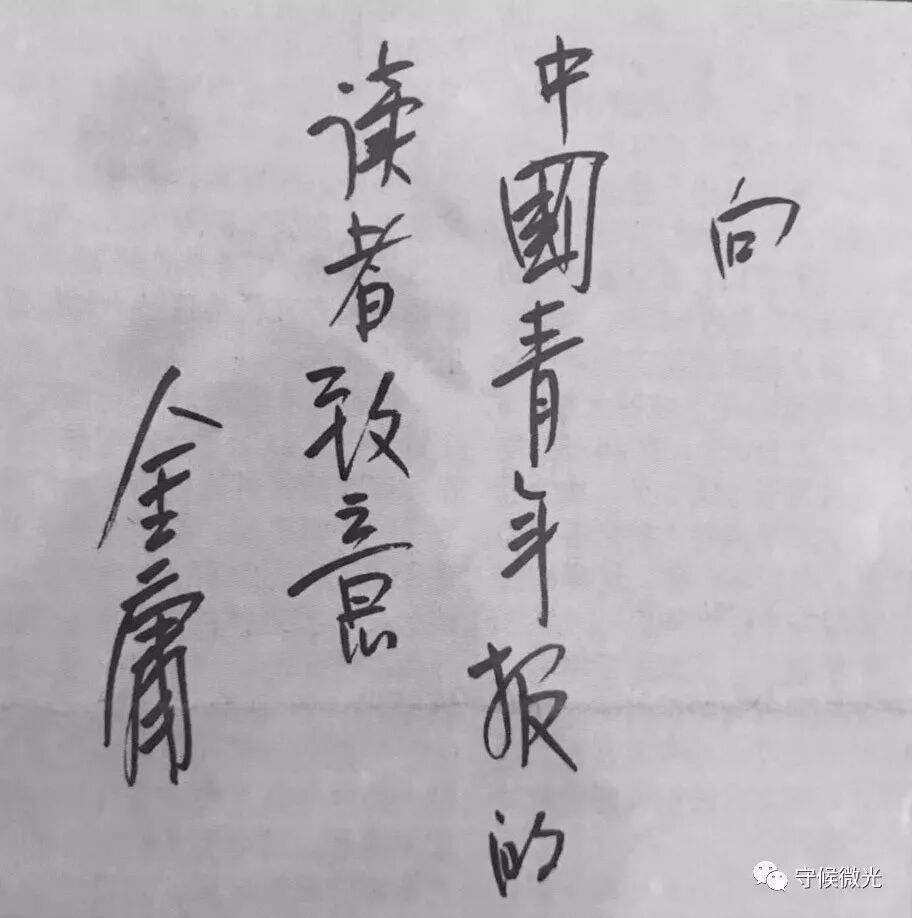 向
中國青年报的
读者致意
金庸
守候微光